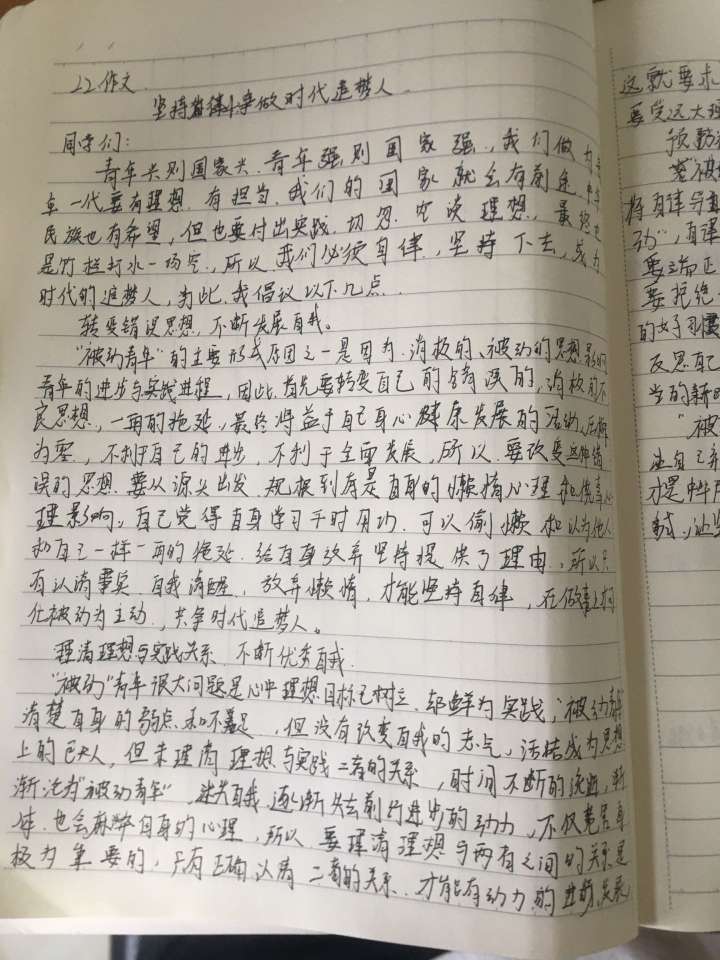 22.作文.
坚持自律,争做时代追梦人.
同学们:
青年兴则国家兴.青年强,则国家强,我们做为
一代要有理想.有担当.我们的国家就会有前途
民族也有希望,但也要付出实践.切忽.空谈理想,最终
是竹栏打水一场空,所以.我们必须自律,坚持下去,成为
时代的追梦人,为此.我倡议以下几点.
转变错误思想,不断发展自我。
"被动青年"的主要形成原因之一是因为.消极的、被动的思想影响
青年的进步与实践进程,因此.首先要转变自己的错误的,消极的不
良思想,一再的拖延,最终将益于自己身心健康发展的活动
为零,不利于自己的进步,不利于全面发展,所以.要改变这种错
误的思想.要从源头出发.规模到底是自身的懒惰心理和
理影响。自己觉得自身学习平时用功.可以偷懒和认为他人
和自己一样一再的拖延.给自身放弃坚持提供了理由,所以只
有认清事实.自我清醒,放弃懒惰,才能坚持自律,在做事上
化被动为主动,共争时代追梦人。
理清理想与实践关系.不断优秀自我.
"被动"青年很大问题是心中理想目标已树立.却鲜为实践,"被动青年
清楚自身的弱点和不足,但没有改变自我的志气,活活成为思想
上的巨人,但未理清理想与实践二者的关系,时间不断的流逝,渐
渐沦为"被动青年",迷失自我.逐渐失去前行进步的动力,不仅危害身
体.也会麻弊自身的心理,所以.要理清理想与两者之间的关系是
极为重要的,只有正确认清二者的关系.才能有动力的进步,发展
这就要求
要受远大理
将自律与
动",自律
要端正
要拒绝
的好习惯
反思自己
当的新时
"被